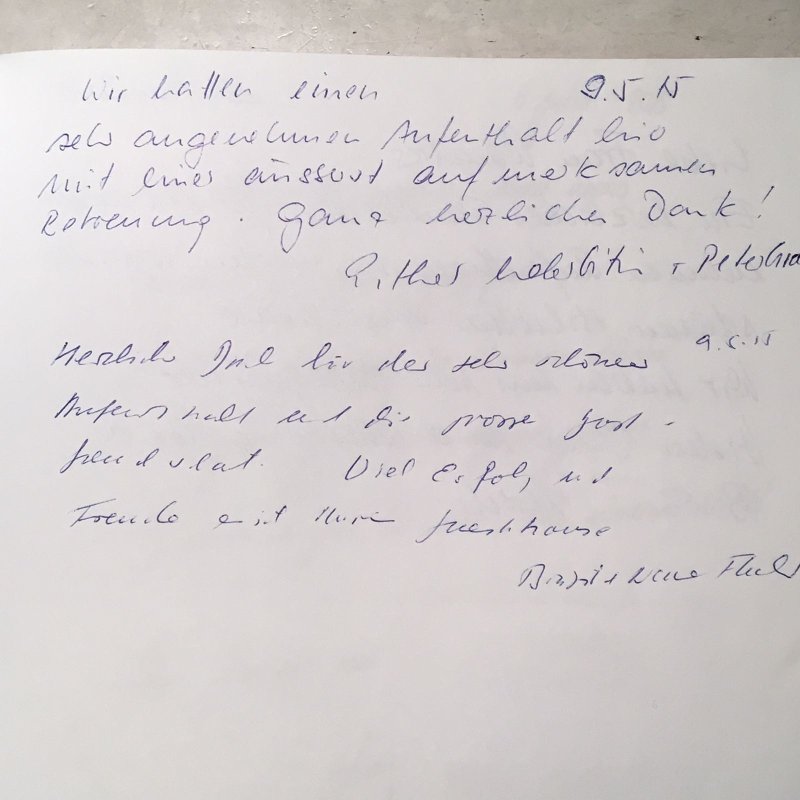 Wir hatten einen 9.5.15
sehr angenehmen Aufenthalt hier
mit einer äussert aufmerksamen
Betreuung. Ganz herzlichen Dank!
Esther + Peter
Herzlichen Dank für den sehr schönen 9.5.15
Aufenthalt und die grosse Gast-
freundschaft. Viel Erfolg und
Freude mit Ihrem guesthouse